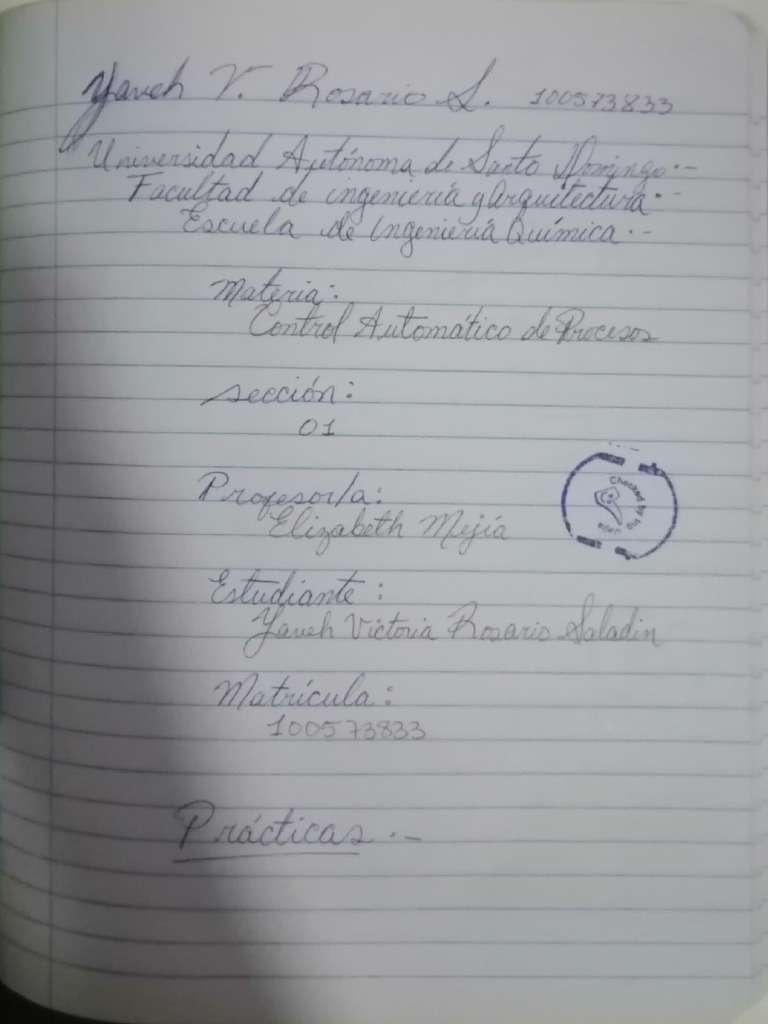 Yaveh V. Rosario S. 100573833
Universidad Autónoma de Santo Domingo.-
Facultad de ingeniería y Arquitectura.-
Escuela de Ingeniería Química.-
Materia:
Control Automático de Procesos
Sección:
01
Profesor/a:
Elizabeth Mejía
Checked by Ing
Estudiante:
Yaveh Victoria Rosario Saladin
Matrícula:
100573833
Prácticas.-